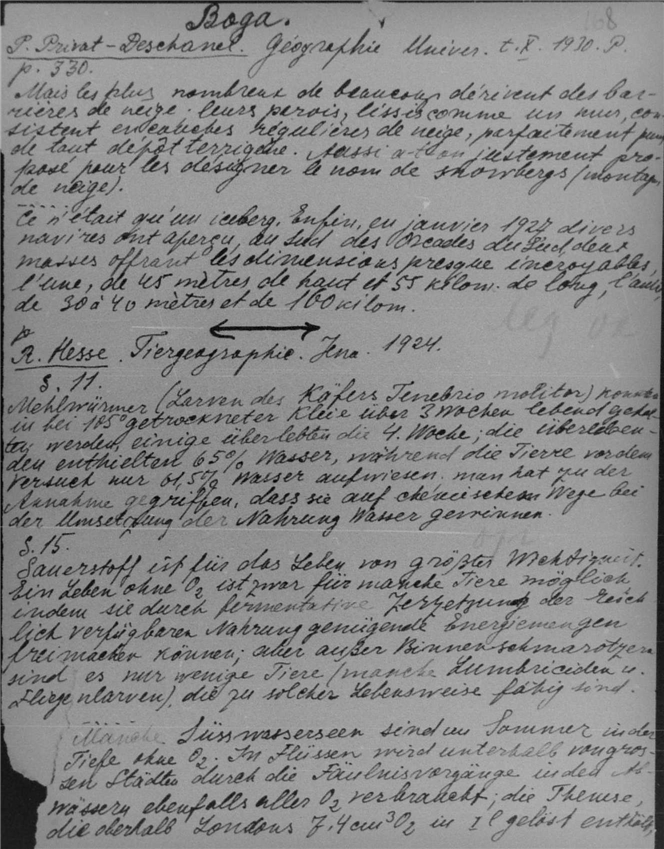 Вода.
168
P. Privat-Deschanel. Géographie Univer. t. X. 1930. P.
p. 330.
Mais les plus nombreux de beaucoup dérivent des bar-
rières de neige. leurs parois, lisses comme un mur, con-
sistent en couches régulières de neige, parfaitement pures
de tout dépôt terrigène. Aussi a-t-on justement pro-
posé pour les désigner le nom de snowbergs (montagnes
de neige).
Ce n'était qu'un iceberg. Enfin, en janvier 1927 divers
navires ont aperçu, au sud des Orcades du Sud deux
masses offrant les dimensions presque incroyables,
l'une, de 45 mètres de haut et 55 kilom. de long, l'autre,
de 30 à 40 mètres et de 160 kilom.
R. Hesse. Tiergeographie. Jena. 1924.
S. 11.
Mehlwürmer (Larven des Käfers Tenebrio molitor) konnten
in bei 105° getrockneter Kleie über 3 Wochen lebend gehal-
ten werden, einige überlebten die 4. Woche; die überleben-
den enthielten 65% Wasser, während die Tierre vor dem
Versuch nur 61,5% Wasser aufwiesen. man hat zu der
Annahme gegriffen, dass sie auf chemischem Wege bei
der Umsetzung der Nahrung Wasser gewinnen.
S. 15.
Sauerstoff ist für das Leben von größter Wichtigkeit.
Ein Leben ohne O₂ ist zwar für manche Tiere möglich
indem sie durch fermentative Zersetzung der reich
lich verfügbaren Nahrung genügende Energiemengen
freimachen können; aber außer Binnenschmarotzern
sind es nur wenige Tiere (manche Lumbriciden u.
Fliegenlarven), die zu solcher Lebensweise fähig sind.
Manche Süsswasserseen sind im Sommer in der
Tiefe ohne O₂. In Flüssen wird unterhalb von gros-
sen Städten durch die Fäulnisvorgänge in den Ab-
wässern ebenfalls aller O₂ verbraucht; die Themse,
die oberhalb Londons 7.4 cm³ O₂ in 1 l gelöst enthält,